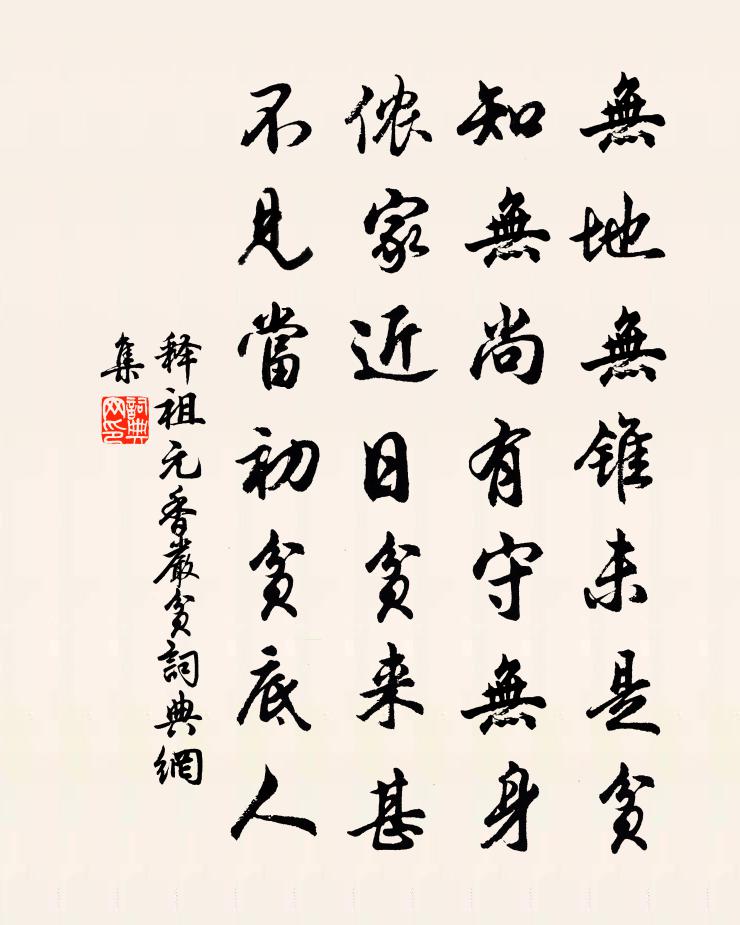 無地無錐未是貧
知無尚有守無身
侬家近日貧来甚
不見當初貧底人
释祖元香嚴貧詞典網
集
詞典网印